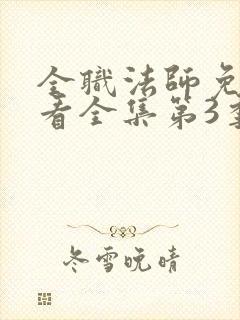 全職法師免
看全集第3季
冬雪晚晴